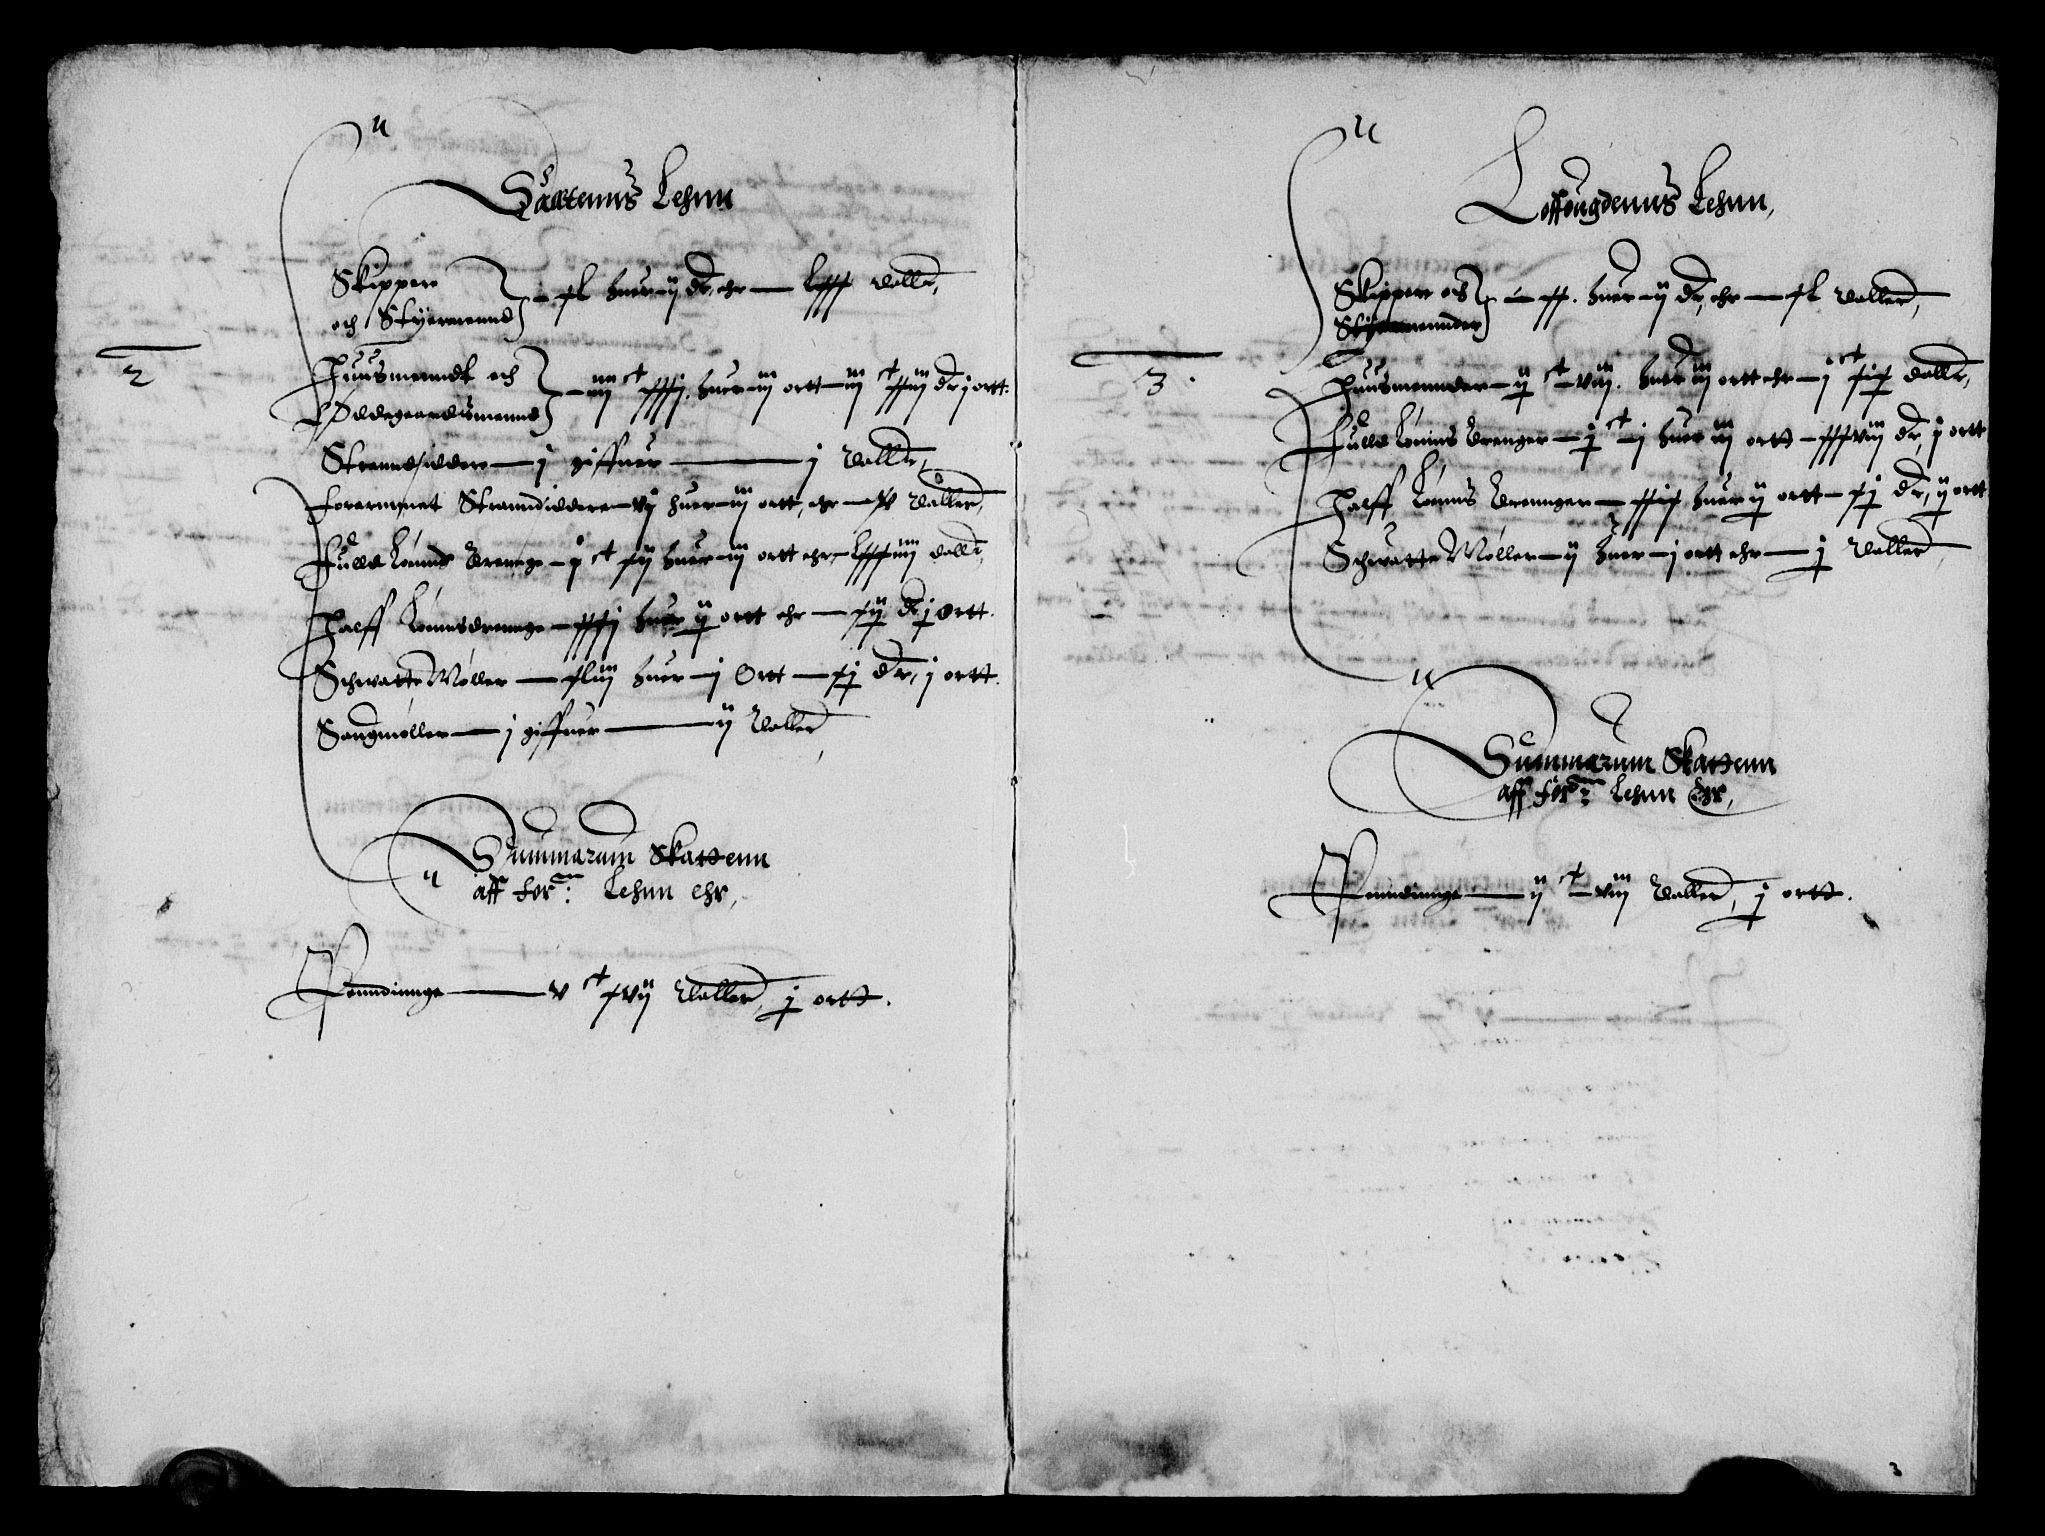 Saltenns Lehnn
Skippere
och Styermennd } – xl huer – ij dr, ehr — lxxx daller,
2
Huusmenndt och
Ødegaardsmennd } – iiij c xxxj. huer – iij ortt – iij c xxiij dr j ortt.
Stranndsiddere — j giffuer — j daller,
Forarmmet Stranndsiddere – vj huer – iij ortt, ehr — iv daller,
Fulde Lønns Drennge – j c xij huer – iij ortt ehr – lxxxiiij daller,
Halff Lønnsdrennge – xxxj huer ij ortt ehr — xij dr j ortt.
Schwatte Møller — xliij huer – j Ortt — xj dr, j ortt.
Saugmøller — j giffuer — ij daller,
Summarum Skattenn
aff forn: Lehnn ehr,
Penndinnge — v c xvij daller, j ortt.
Loffougdenns Lehnn,
Skippere och
Styermennder } – xx. huer – ij dr, ehr — xl daller,
3.
Huusmennder – ij c – viij. huer iij ortt ehr – j c xix daller,
Fulde Lønns Drenger – j c – j huer iij ortt – xxxviij dr, j ortt
Halff Lønns Drennger – xxix huer ij ortt – xj dr, ij ortt
Schwatte Møller – ij huer – j ortt ehr — j daller,
Summarum Skattenn
aff forn: Lehnn Ehr,
Penndinnge — ij c – viij daller, j ortt.
3